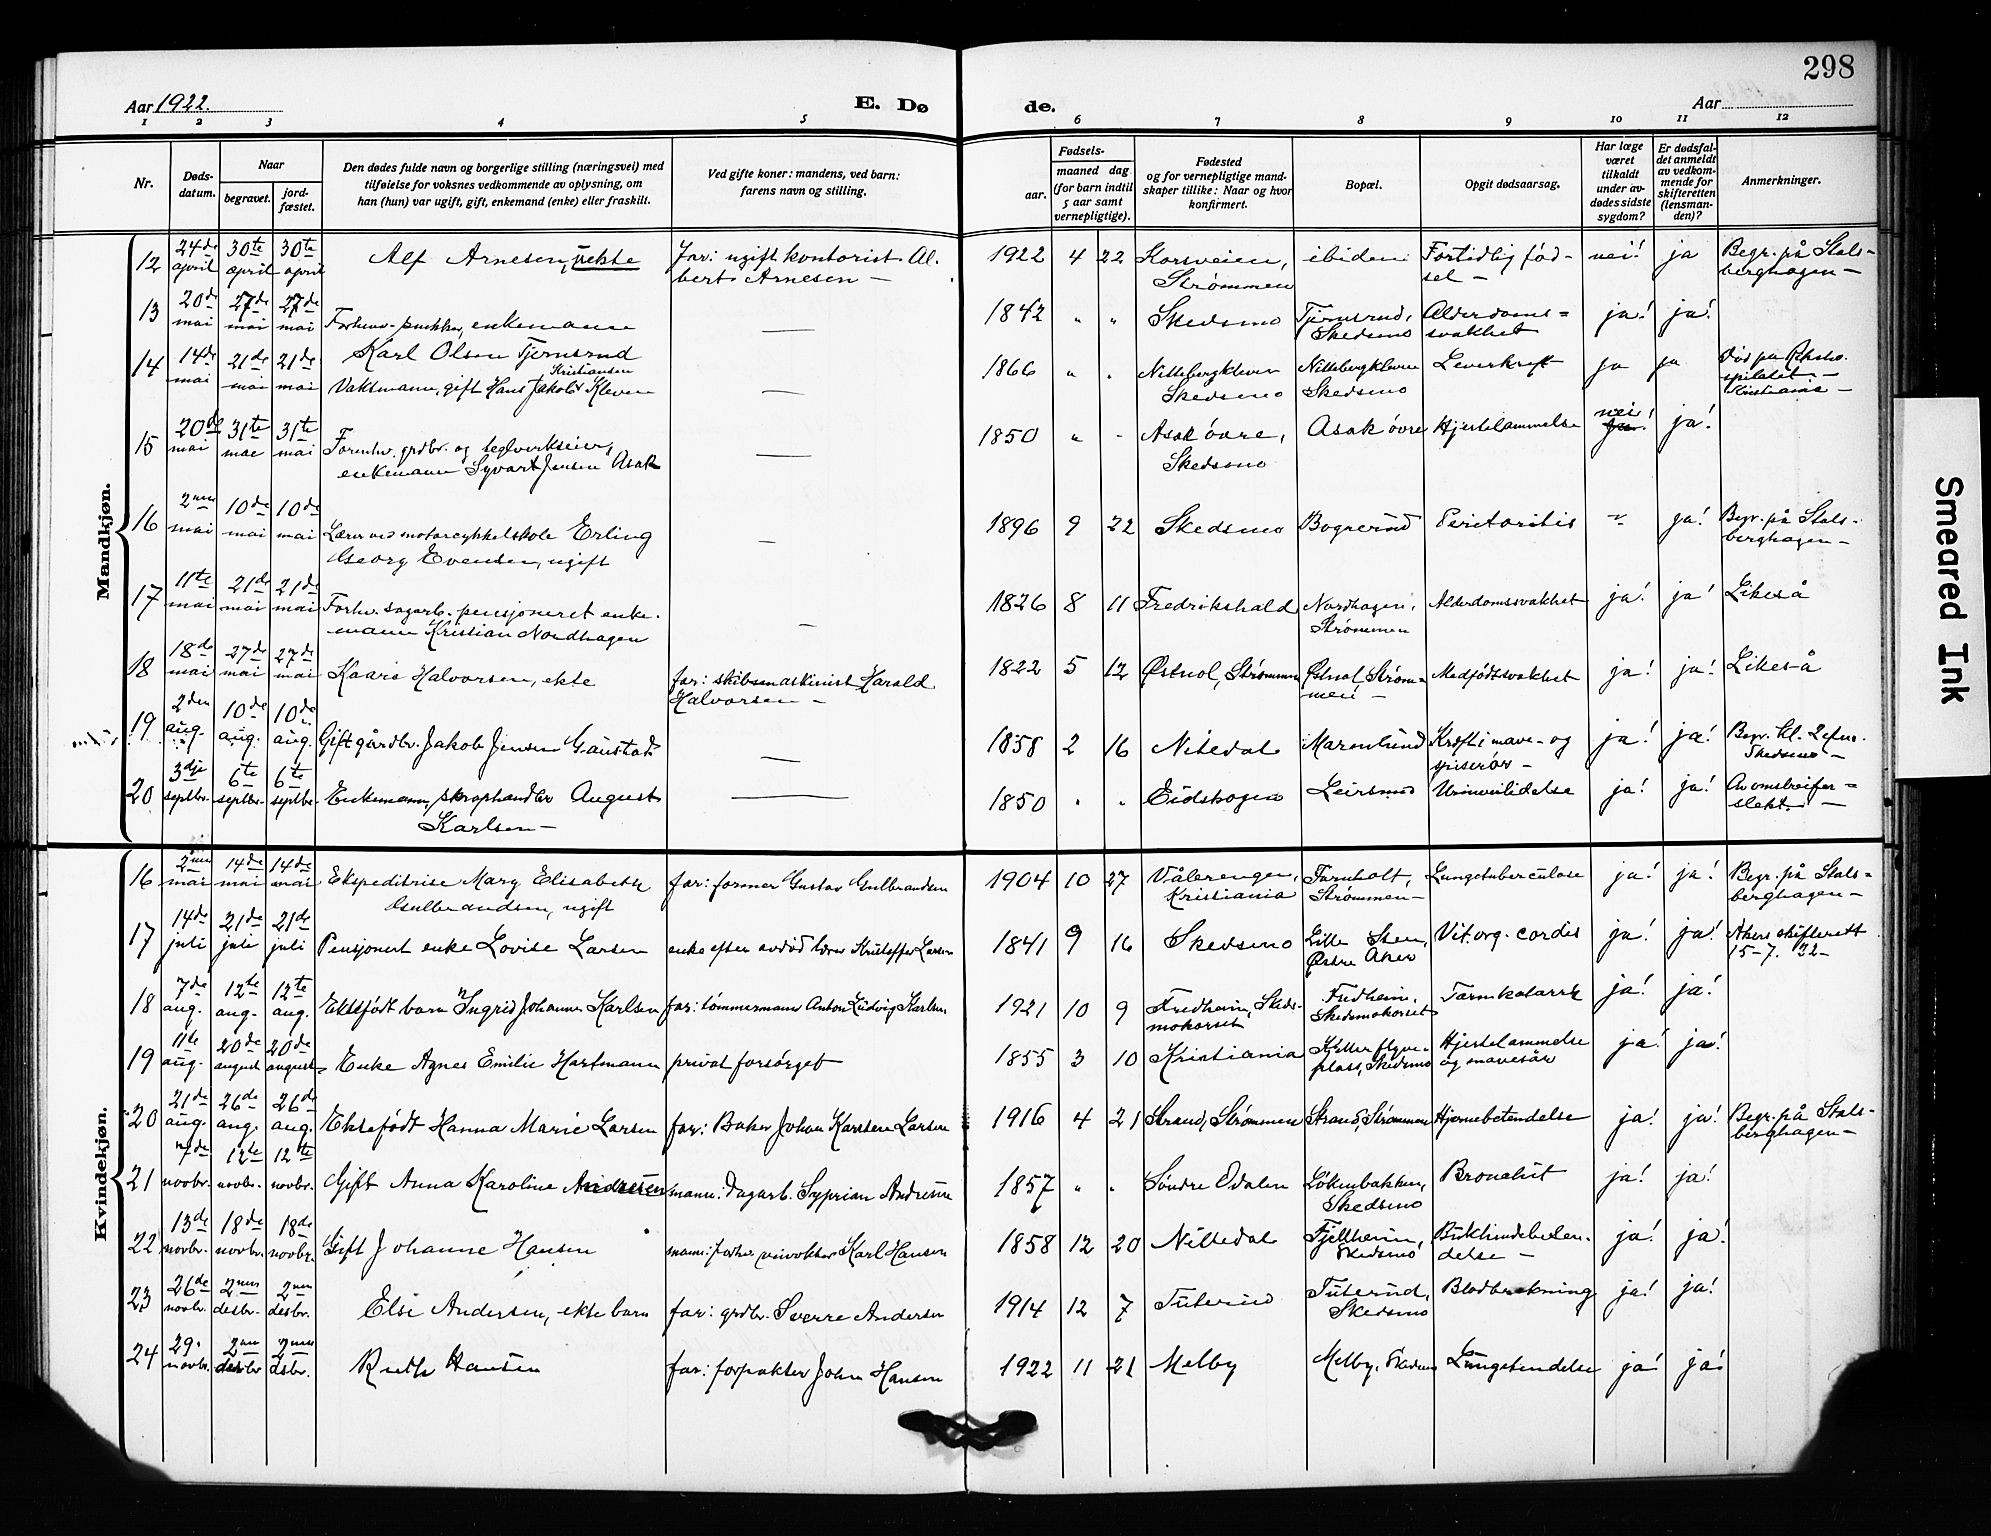 298
Aar 1922.
E. Dø de.
Aar
1 2 3 4 5 6 7 8 9 10 11 12
Nr.
Døds-
datum.
Naar
begravet.
jord-
fæstet.
Den dødes fulde navn og borgerlige stilling (næringsvei) med
tilføielse for voksnes vedkommende av oplysning, om
han (hun) var ugift, gift, enkemand (enke) eller fraskilt.
Ved gifte koner: mandens, ved barn:
farens navn og stilling.
Fødsels-
aar.
maaned dag
(for barn indtil
5 aar samt
vernepligtige).
Fødested
og for vernepligtige mand-
skaper tillike: Naar og hvor
konfirmert.
Bopæl.
Opgit dødsaarsag.
Har læge
været
tilkaldt
under av-
dødes sidste
sygdom?
Er dødsfal-
det anmeldt
av vedkom-
mende for
skifteretten
(lensman-
den)?
Anmerkninger.
Mandkjøn.
12 24de april 30te april 30te april Alf Arnesen, uekte far: ugift kontorist Al-
bert Arnesen — 1922 4 22 Korsveien, Strømmen ibidem Fortidlig fød-
sel — nei! ja Begr. på Stals-
berghagen —
13 20de mai 27de mai 27de mai Forhenv. pukker, enkemann
Karl Olsen Tjernsrud — 1842 " " Skedsmo Tjernsrud, Skedsmo Alderdoms-
svakhet ja! ja!
14 14de mai 21de mai 21de mai Vaktmann, gift Hans Jakob Kristiansen Kleven — 1866 " " Nittebergkleven Skedsmo Nittebergkleven Skedsmo Leverkreft ja ja Død på Riksho-
spitalet —
Kristiania —
15 20de mai 31te mai 31te mai Forenhv. grdbr. og teglverkseier,
enkemann Syvart Jensen Asak — 1850 " - Asak övre, Skedsmo Asak övre Hjertelammelse nei! ja!
16 2nen mai 10de mai 10de mai Lærer ved motorcykkelskole Erling
Georg Evensen, ugift — 1896 9 22 Skedsmo Bogerud Peritoritis " ja! Begr. på Stals-
berghagen —
17 11te mai 21de mai 21de mai Forhv. sagarb. pensjoneret enke-
mann Kristian Nordhagen — 1826 8 11 Fredrikshald Nordhagen, Strømmen Alderdomssvakhet ja! ja! Likeså
18 18de mai 27de mai 27de mai Kaare Halvorsen, ekte far: skibsmaskinist Harald
Halvorsen — 1822 5 12 Østvol, Strømmen Østvol, Strøm-
men — Medfödt svakhet ja! ja! Likeså
19 2den aug. 10de aug. 10de aug. Gift gårdbr. Jakob Jensen Gaustad — 1858 2 16 Nitedal Marenlund Kreft i mave- og
spiserör — ja! ja! Begr. kl. 2 efm.
Skedsmo —
20 3dje septbr. 6te septbr. 6te septbr. Enkemann, skraphandler August
Karlsen — — 1850 " " Eidskogen Leirsund Urinveislidelse ja! ja! Av omstreifer-
slekt. —
Kvindekjøn.
16 2nen mai 14de mai 14de mai Ekspeditrise Mary Elisabeth
Gulbrandsen, ugift far: former Gustav Gulbrandsen 1904 10 27 Vålerengen, Kristiania Furuholt, Strømmen — Lungetuberculose ja! ja! Begr. på Stals-
berghagen —
17 14de juli 21de juli 21de juli Pensjonert enke Lovise Larsen enke efter avdöd lærer Kristoffer Larsen 1841 9 16 Skedsmo Lille Sten, Østre Aker Vit. org. cordis ja! ja! Akers skifterett
15-7. 22-
18 7de aug. 12te aug. 12te aug. Ektefödt barn Ingrid Johanne Karlsen far: tömmermann Anton Ludvig Karlsen 1921 10 9 Fredheim, Skeds-
mokorset Fredheim, Skedsmokorset Tarmkatarrh ja! ja!
19 11te aug. 20de august 20de august Enke Agnes Emilie Hartmann privat forsörget 1855 3 10 Kristiania Kjeller flyve-
plass, Skedsmo Hjertelammelse
og mavesår ja! ja!
20 21de aug. 26de aug. 26de aug. Ektefödt Hanna Marie Larsen far: Baker Johan Karsten Larsen 1916 4 21 Strand, Strømmen Strand, Strømmen Hjernebetendelse ja! ja! Begr. på Stals-
berghagen —
21 7de novbr. 12te novbr. 12te novbr. Gift Anna Karoline Andresen mann: Dagarb. Syprian Andresen 1857 " " Söndre Odalen Lökenbakken, Skedsmo Bronchit ja! ja!
22 13de novbr. 18de novbr. 18de novbr. Gift Johanne Hansen mann: forhv. veivokter Karl Hansen 1858 12 20 Nittedal Fjellheim, Skedsmo Bukhindebeten-
delse — ja! ja!
23 26de novbr. 2nen desbr. 2nen desbr. Else Andersen, ekte barn far: grdbr. Sverre Andersen 1914 12 7 Tuterud Tuterud, Skedsmo Blodbrekning ja! ja!
24 29. novbr. 2nen desbr 2nen dsbr. Ruth Hansen far: forpakter John Hansen 1922 11 21 Melby Melby, Skedsmo Lungebetendelse ja! ja!
Smeared Ink